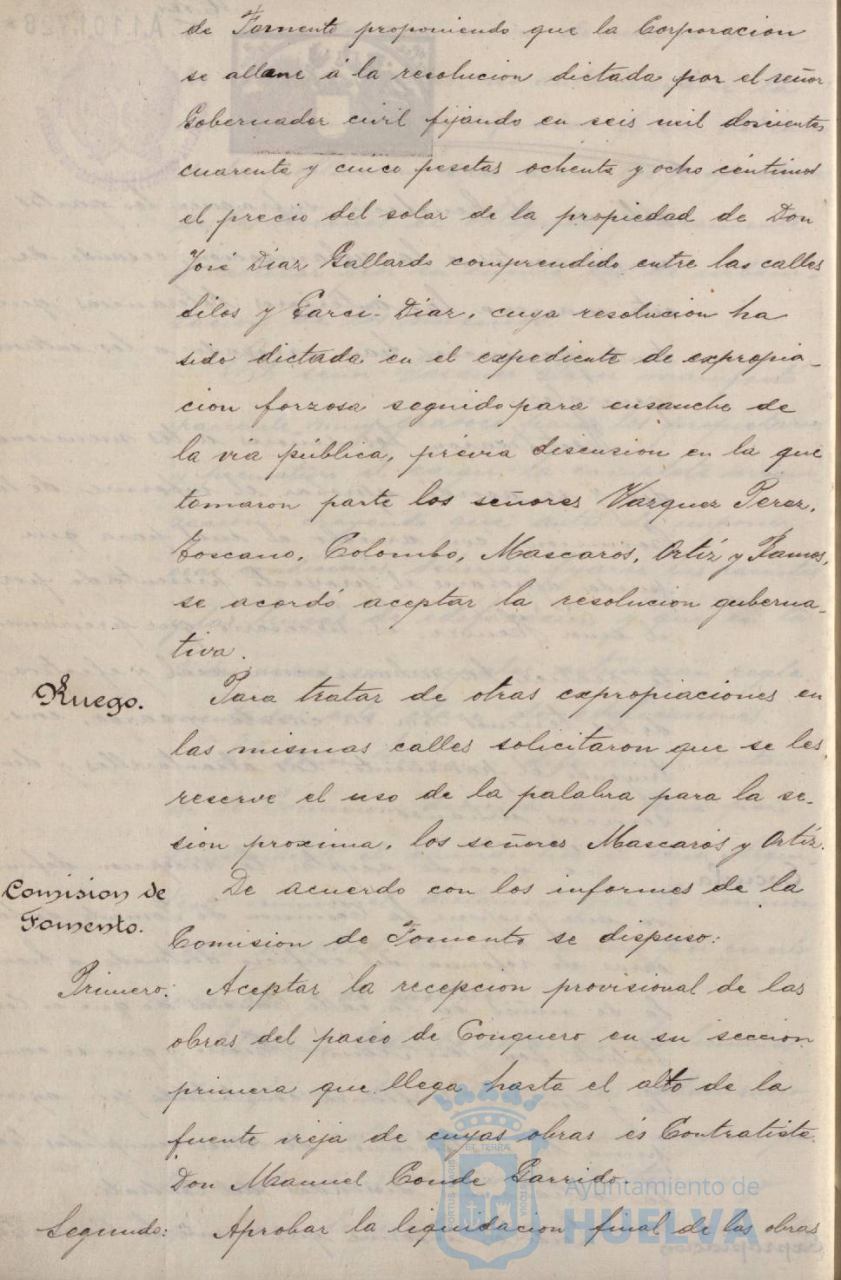 de Fomento proponiendo que la Corporacion
se allane á la resolucion dictada por el señor
Gobernador civil fijando en seis mil doscientas
cuarenta y cinco pesetas ochenta y ocho céntimos
el precio del solar de la propiedad de Don
José Diaz Gallardo comprendido entre las calles
Silos y Garci-Diaz, cuya resolucion ha
sido dictada en el expediente de expropia-
cion forzosa seguido para ensanche de
la via pública, prévia discusion en la que
tomaron parte los señores Vazquez Perez,
Toscano, Colombo, Mascarós, Ortíz y Ramos,
se acordó aceptar la resolucion guberna-
tiva.
Ruego. Para tratar de otras expropiaciones en
las mismas calles solicitaron que se les
reserve el uso de la palabra para la se-
sion proxima, los señores Mascarós y Ortíz.
Comision de Fomento. De acuerdo con los informes de la
Comision de Fomento se dispuso:
Primero: Aceptar la recepcion provisional de las
obras del paseo de Conquero en su seccion
primera que llega hasta el alto de la
fuente vieja de cuyas obras és Contratista
Don Manuel Conde Garrido.
Segundo: Aprobar la liquidacion final de las obras
Ayuntamiento de
HUELVA